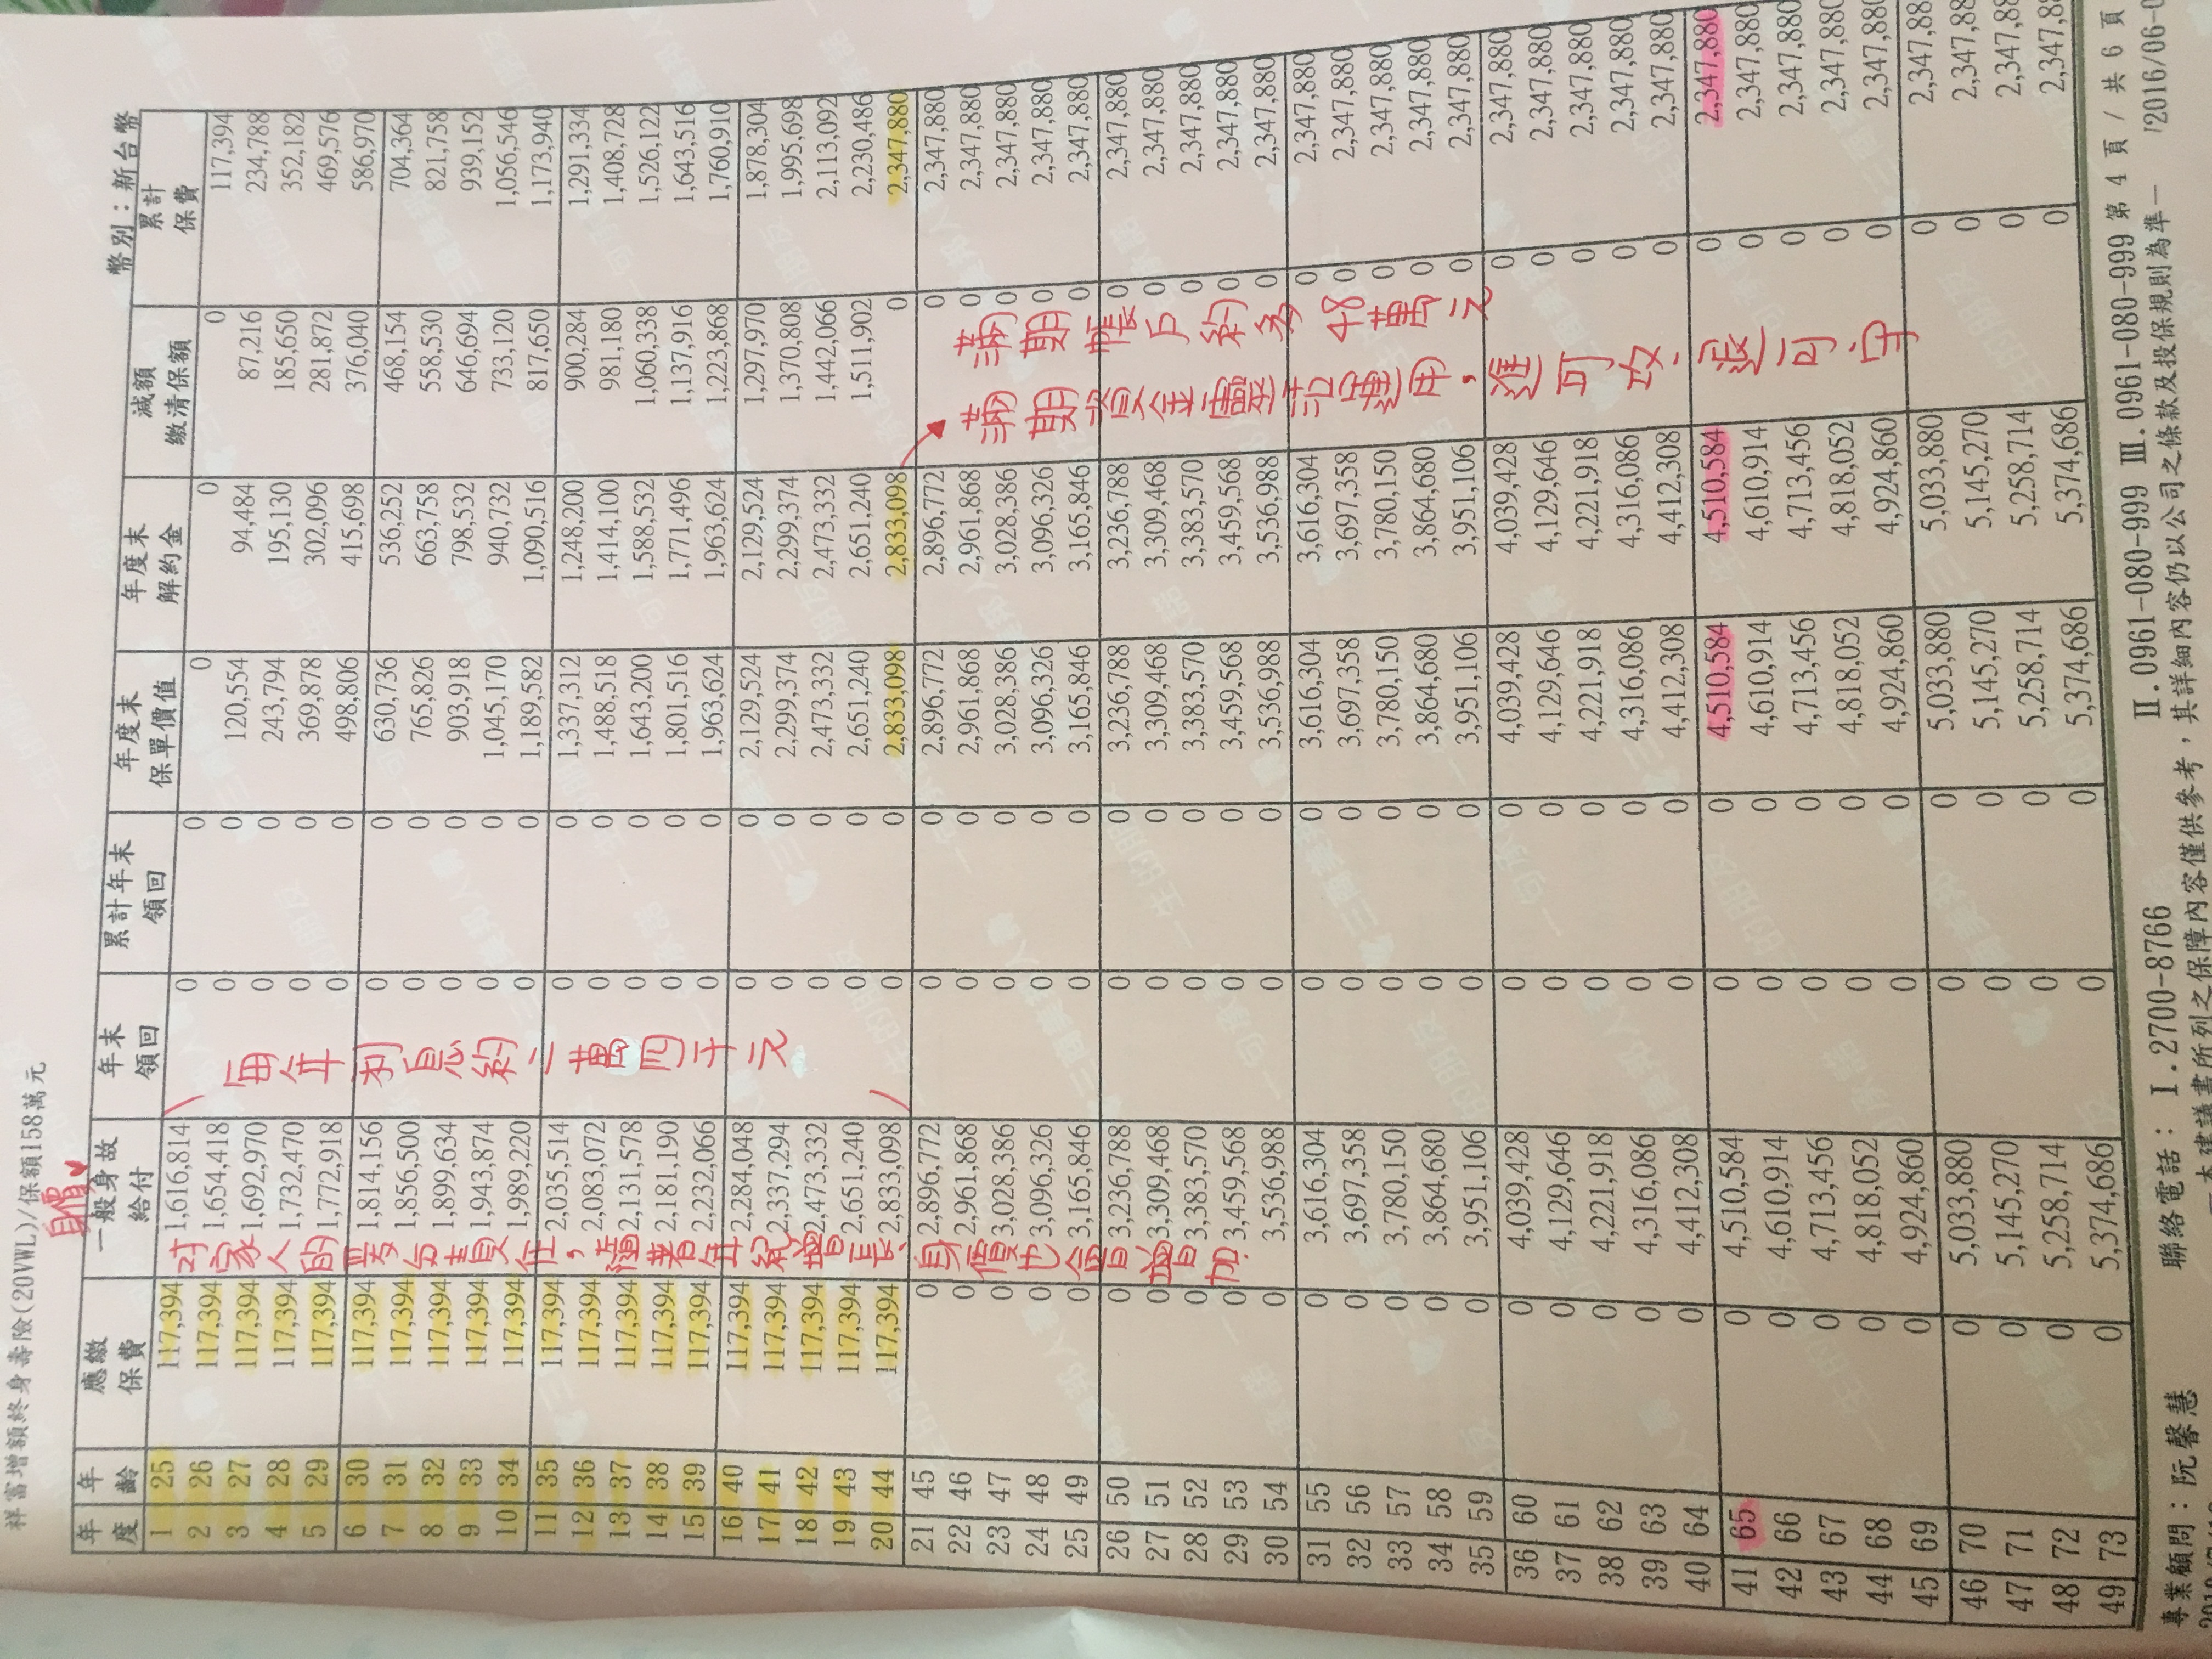 祥富增額終身壽險(20VWL)/保額158萬元
身價♥
幣別：新台幣
年度 年齡 應繳保費 一般身故給付 年末領回 累計年末領回 年度末保單價值 年度末解約金 減額繳清保額 累計保費
1 25 117,394 1,616,814 0 0 0 0 0 117,394
2 26 117,394 1,654,418 0 0 120,554 94,484 87,216 234,788
3 27 117,394 1,692,970 0 0 243,794 195,130 185,650 352,182
4 28 117,394 1,732,470 0 0 369,878 302,096 281,872 469,576
5 29 117,394 1,772,918 0 0 498,806 415,698 376,040 586,970
6 30 117,394 1,814,156 0 0 630,736 536,252 468,154 704,364
7 31 117,394 1,856,500 0 0 765,826 663,758 558,530 821,758
8 32 117,394 1,899,634 0 0 903,918 798,532 646,694 939,152
9 33 117,394 1,943,874 0 0 1,045,170 940,732 733,120 1,056,546
10 34 117,394 1,989,220 0 0 1,189,582 1,090,516 817,650 1,173,940
11 35 117,394 2,035,514 0 0 1,337,312 1,248,200 900,284 1,291,334
12 36 117,394 2,083,072 0 0 1,488,518 1,414,100 981,180 1,408,728
13 37 117,394 2,131,578 0 0 1,643,200 1,588,532 1,060,338 1,526,122
14 38 117,394 2,181,190 0 0 1,801,516 1,771,496 1,137,916 1,643,516
15 39 117,394 2,232,066 0 0 1,963,624 1,963,624 1,223,868 1,760,910
16 40 117,394 2,284,048 0 0 2,129,524 2,129,524 1,297,970 1,878,304
17 41 117,394 2,337,294 0 0 2,299,374 2,299,374 1,370,808 1,995,698
18 42 117,394 2,473,332 0 0 2,473,332 2,473,332 1,442,066 2,113,092
19 43 117,394 2,651,240 0 0 2,651,240 2,651,240 1,511,902 2,230,486
20 44 117,394 2,833,098 0 0 2,833,098 2,833,098 0 2,347,880
21 45 0 2,896,772 0 0 2,896,772 2,896,772 0 2,347,880
22 46 0 2,961,868 0 0 2,961,868 2,961,868 0 2,347,880
23 47 0 3,028,386 0 0 3,028,386 3,028,386 0 2,347,880
24 48 0 3,096,326 0 0 3,096,326 3,096,326 0 2,347,880
25 49 0 3,165,846 0 0 3,165,846 3,165,846 0 2,347,880
26 50 0 3,236,788 0 0 3,236,788 3,236,788 0 2,347,880
27 51 0 3,309,468 0 0 3,309,468 3,309,468 0 2,347,880
28 52 0 3,383,570 0 0 3,383,570 3,383,570 0 2,347,880
29 53 0 3,459,568 0 0 3,459,568 3,459,568 0 2,347,880
30 54 0 3,536,988 0 0 3,536,988 3,536,988 0 2,347,880
31 55 0 3,616,304 0 0 3,616,304 3,616,304 0 2,347,880
32 56 0 3,697,358 0 0 3,697,358 3,697,358 0 2,347,880
33 57 0 3,780,150 0 0 3,780,150 3,780,150 0 2,347,880
34 58 0 3,864,680 0 0 3,864,680 3,864,680 0 2,347,880
35 59 0 3,951,106 0 0 3,951,106 3,951,106 0 2,347,880
36 60 0 4,039,428 0 0 4,039,428 4,039,428 0 2,347,880
37 61 0 4,129,646 0 0 4,129,646 4,129,646 0 2,347,880
38 62 0 4,221,918 0 0 4,221,918 4,221,918 0 2,347,880
39 63 0 4,316,086 0 0 4,316,086 4,316,086 0 2,347,880
40 64 0 4,412,308 0 0 4,412,308 4,412,308 0 2,347,880
41 65 0 4,510,584 0 0 4,510,584 4,510,584 0 2,347,880
42 66 0 4,610,914 0 0 4,610,914 4,610,914 0 2,347,880
43 67 0 4,713,456 0 0 4,713,456 4,713,456 0 2,347,880
44 68 0 4,818,052 0 0 4,818,052 4,818,052 0 2,347,880
45 69 0 4,924,860 0 0 4,924,860 4,924,860 0 2,347,880
46 70 0 5,033,880 0 0 5,033,880 5,033,880 0 2,347,88
47 71 0 5,145,270 0 0 5,145,270 5,145,270 0 2,347,88
48 72 0 5,258,714 0 0 5,258,714 5,258,714 0 2,347,88
49 73 0 5,374,686 0 0 5,374,686 5,374,686 0 2,347,88
對家人的愛与責任，隨著年紀增長、身價也會增加.
每年利息約二萬四千元
滿期帳戶約多48萬元
滿期資金靈活運用，進可攻、退可守
第 4 頁 / 共 6 頁
專業顧問：阮馨慧 聯絡電話： Ⅰ.2700-8766 Ⅱ.0961-080-999 Ⅲ.0961-080-999
/2016/06-0
－本建議書所列之保障內容僅供參考，其詳細內容仍以公司之條款及投保規則為準－